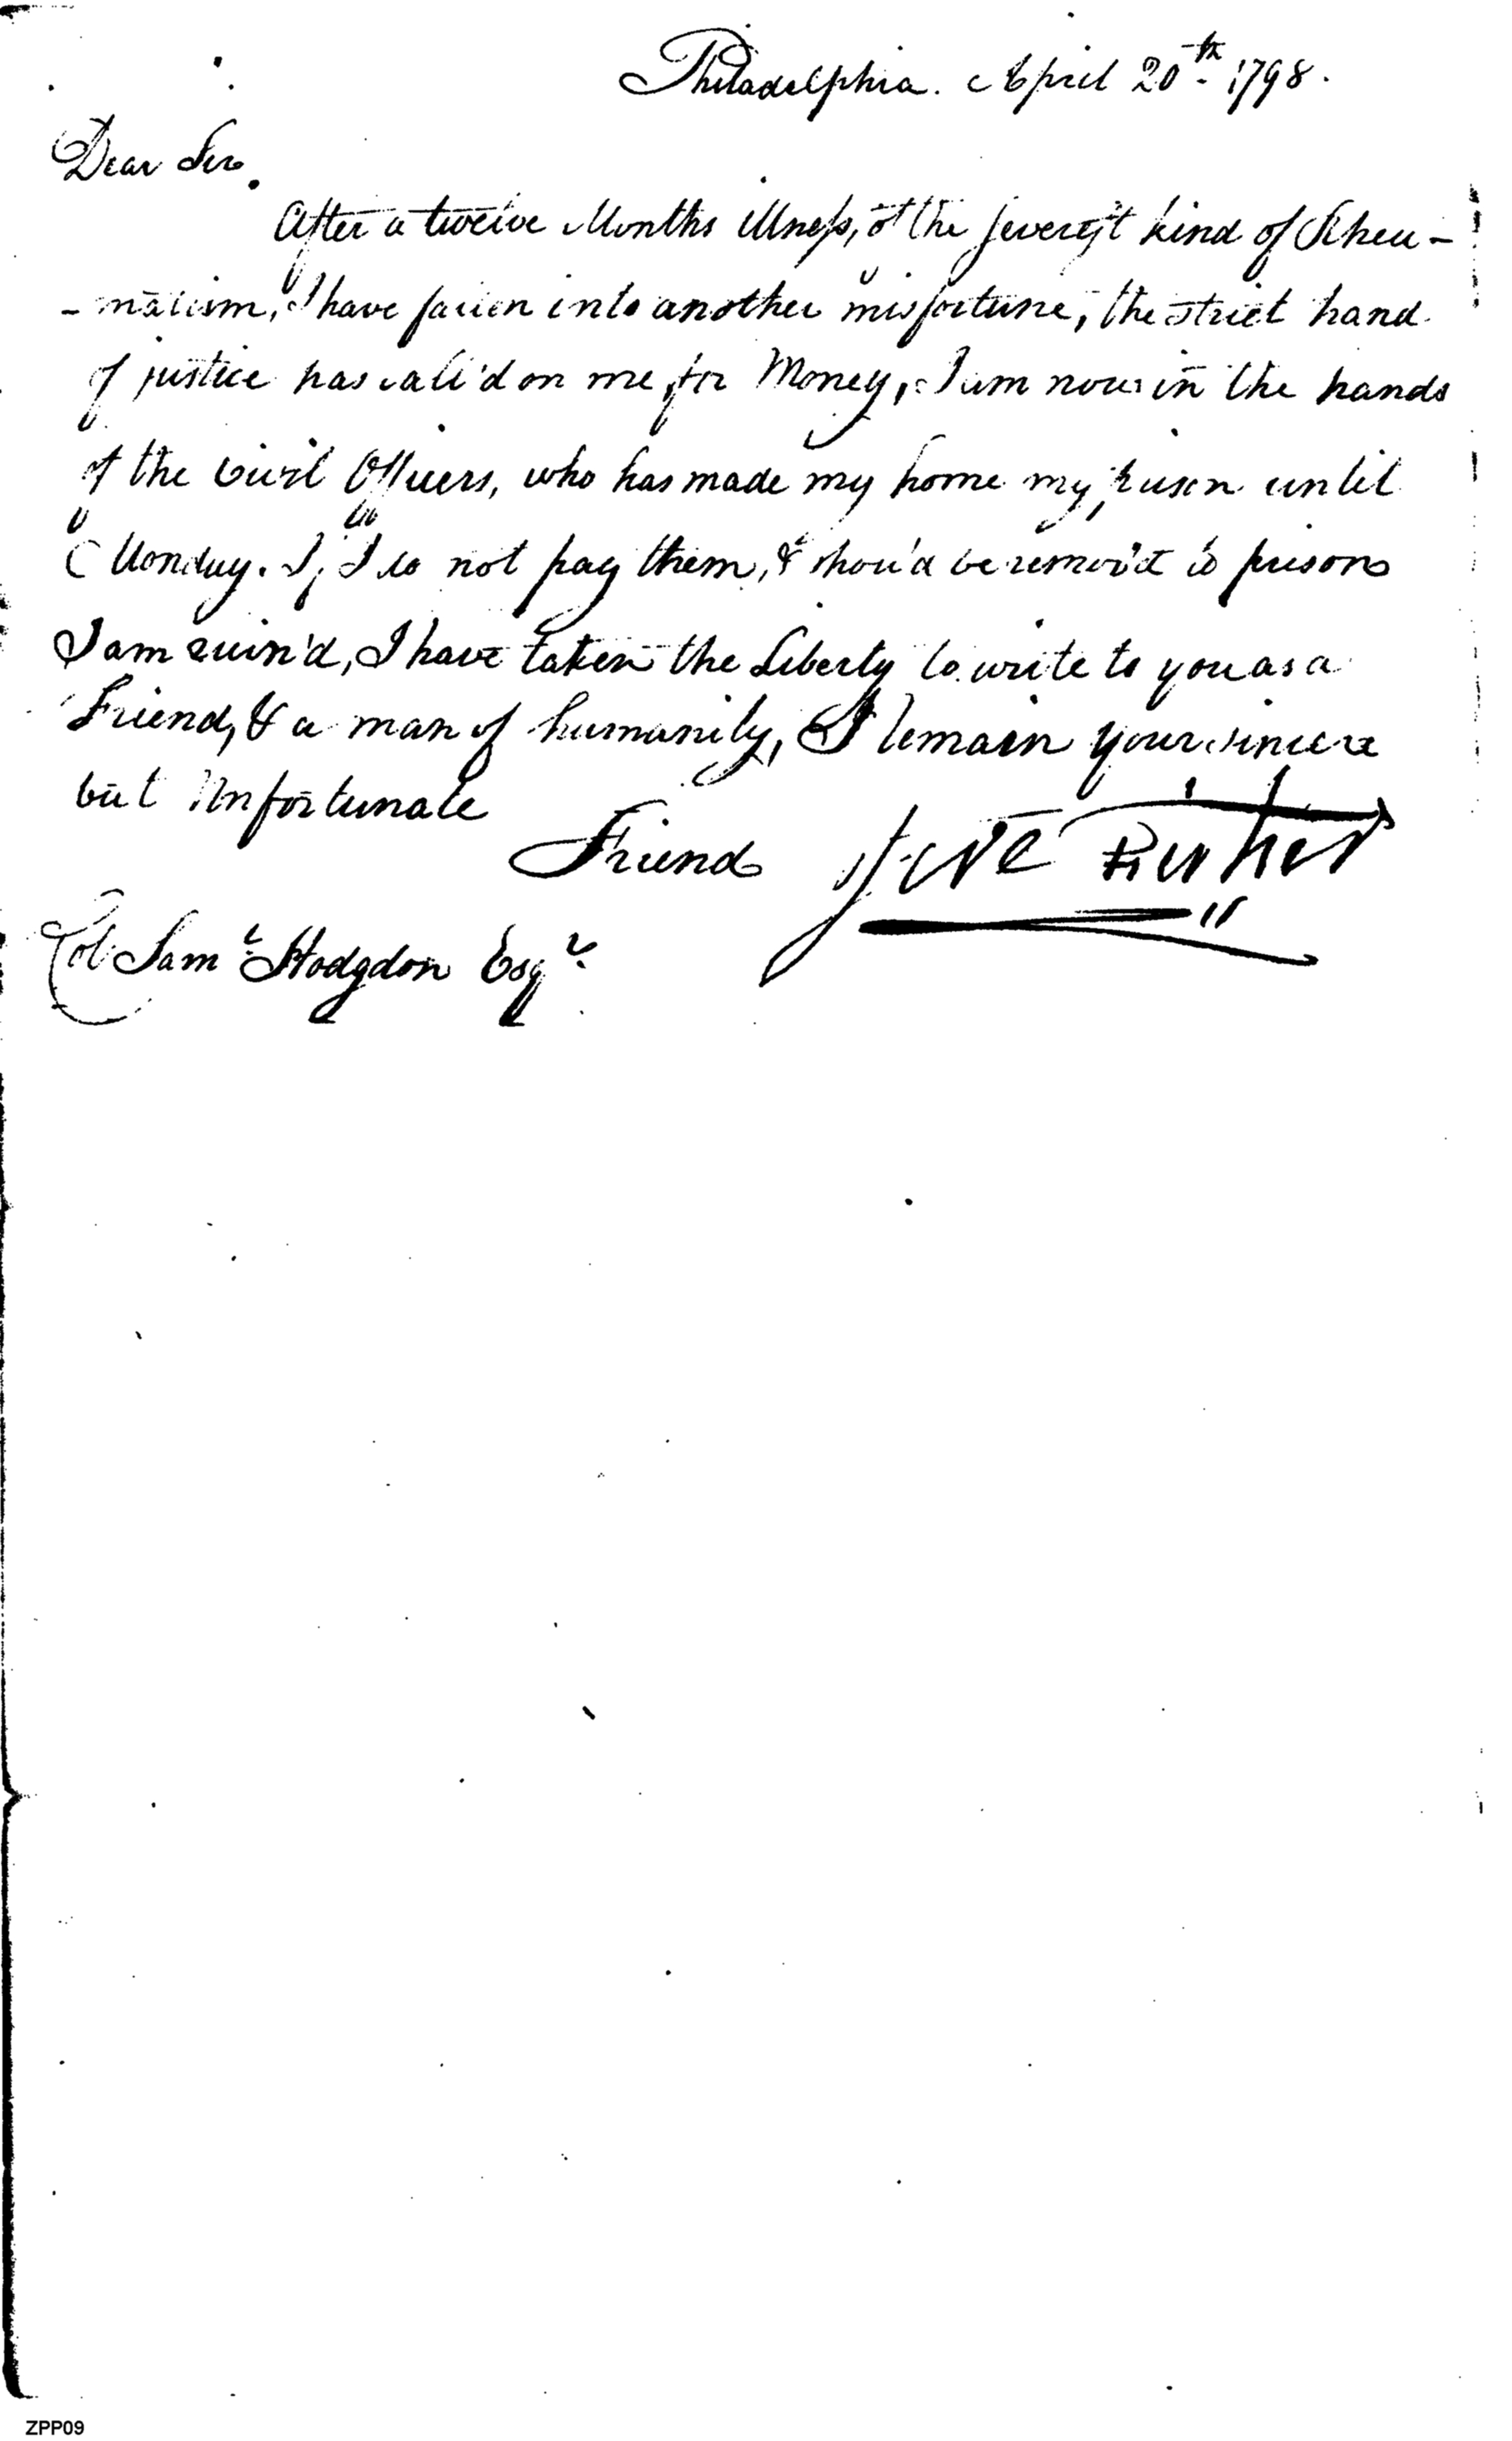 Philadelphia. April 20th 1798.
Dear Sir.
After a twelve Months illness, of the severest kind of Rheu-
-matism, I have fallen into another misfortune, the strict hand
of justice has call'd on me for Money, I am now in the hands
of the Civil Officers, who has made my home my prison until
Monday. If I do not pay them, & shou'd be remov'd to prison
I am ruin'd, I have taken the Liberty to write to you as a
Friend, & a man of humanity, I remain your sincere
but Unfortunate
Friend
Col Saml Hodgdon Esqr
ZPP09